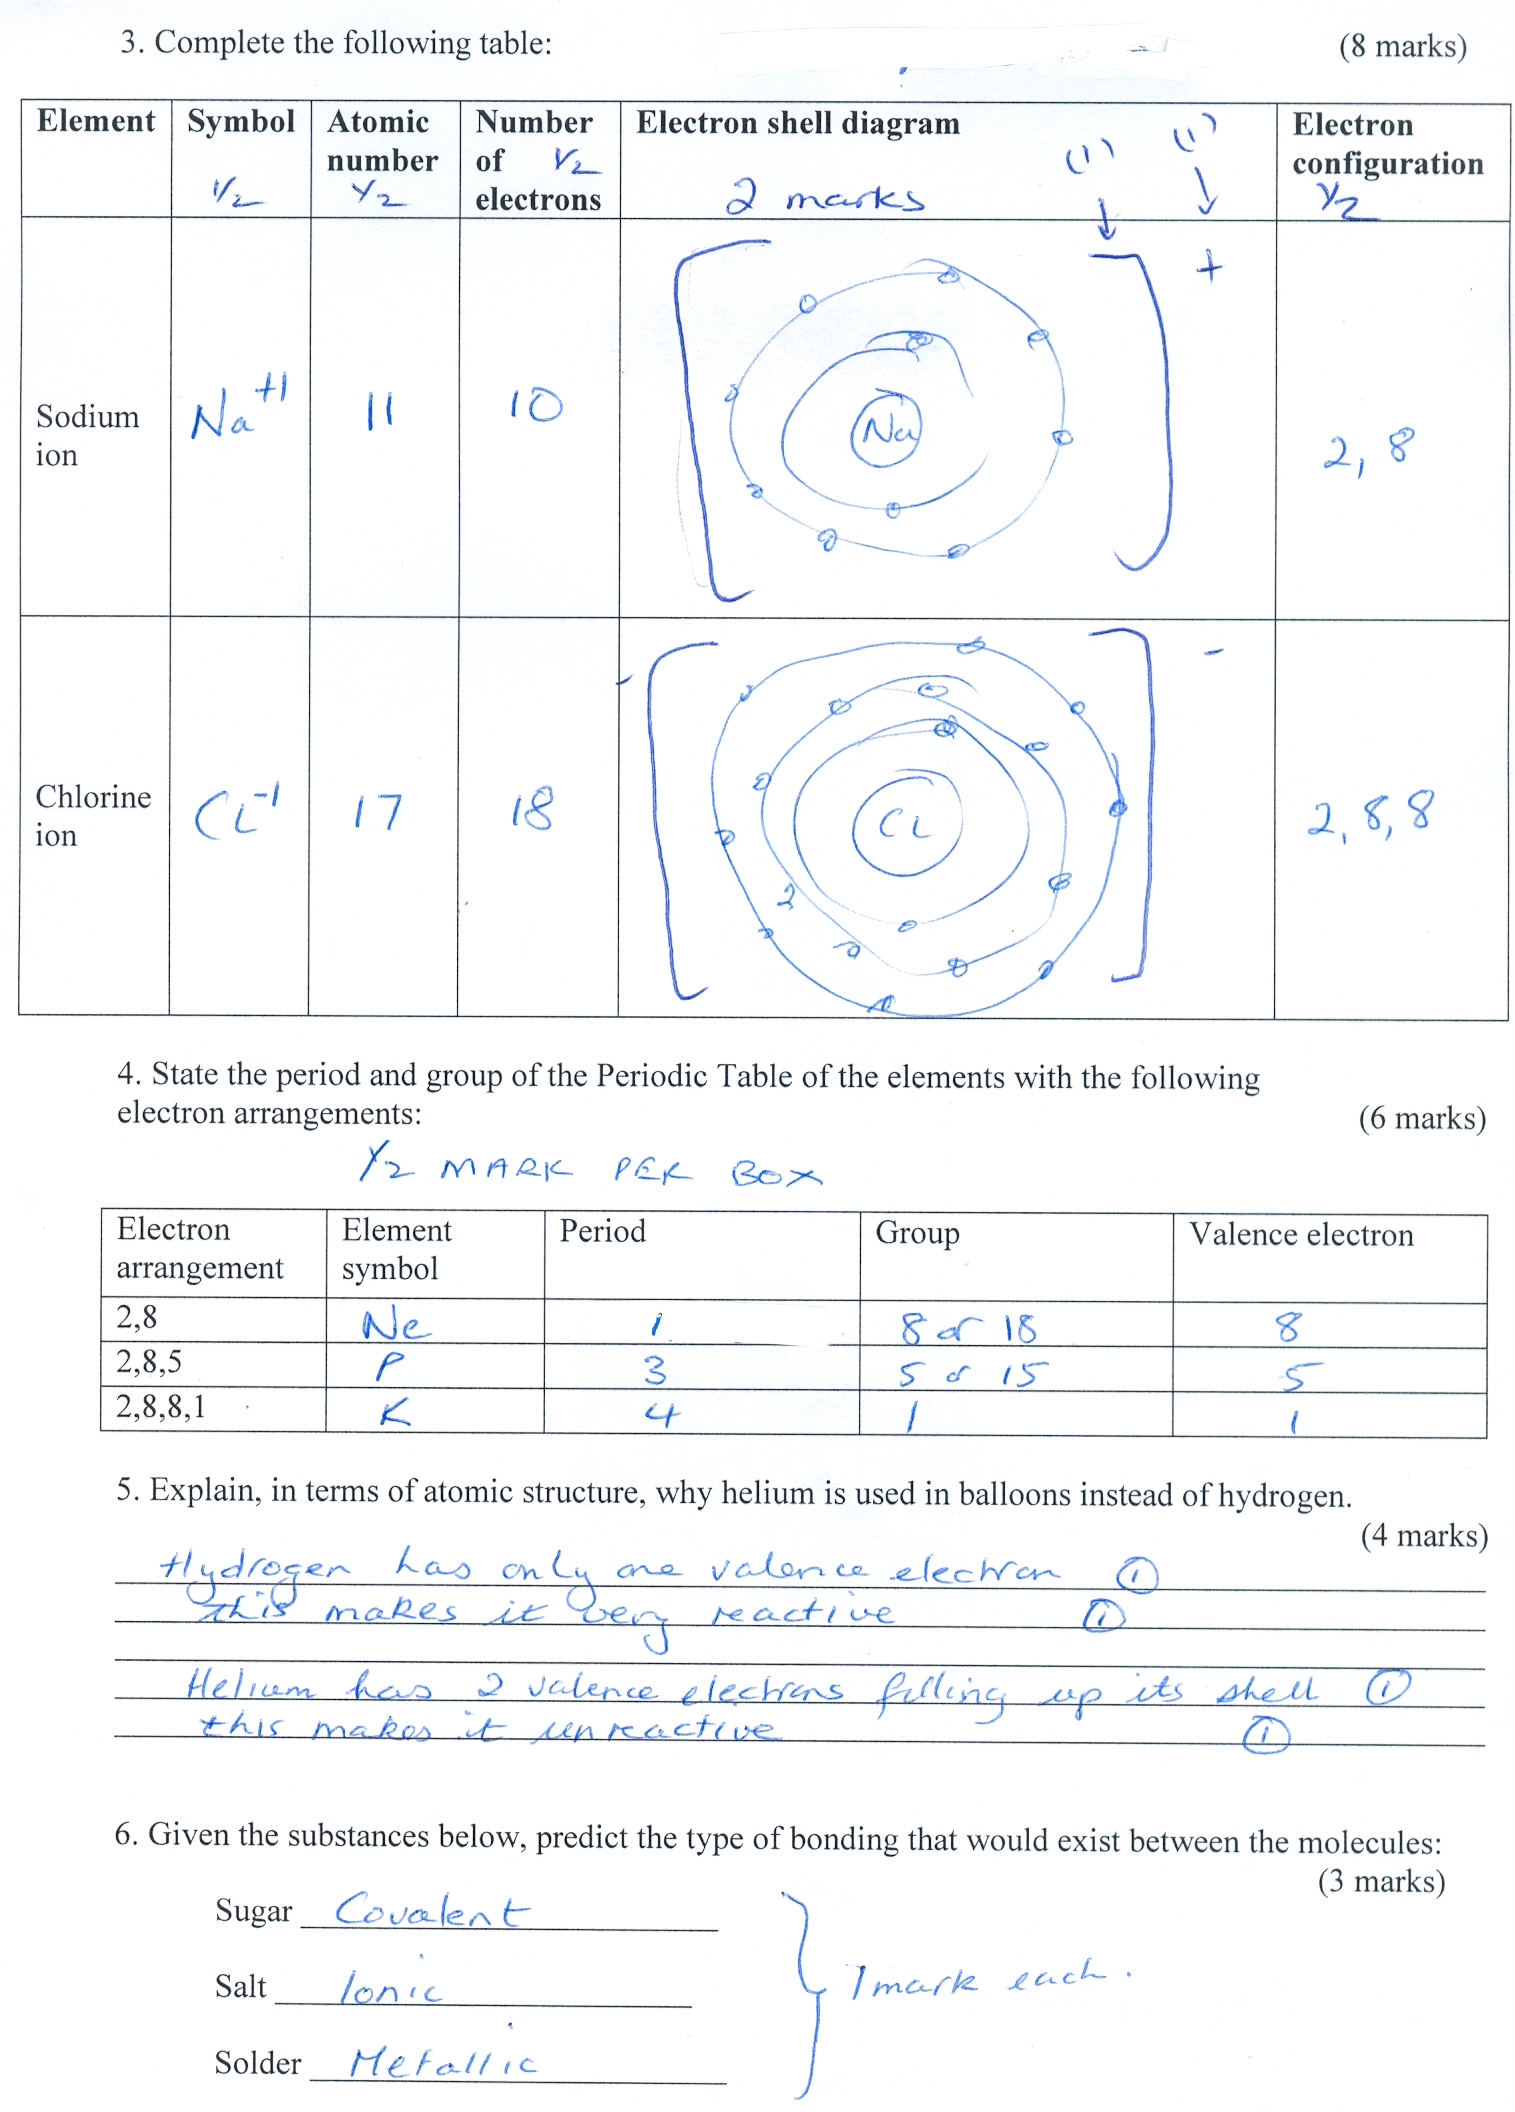 3. Complete the following table: (8 marks)
Element Symbol Atomic number Number of electrons Electron shell diagram Electron configuration
1/2 1/2 1/2 2 marks (1) (1) 1/2
Sodium ion Na+1 11 10 Na + 2, 8
Chlorine ion CL-1 17 18 CL - 2, 8, 8
4. State the period and group of the Periodic Table of the elements with the following
electron arrangements: (6 marks)
1/2 MARK PER BOX
Electron arrangement Element symbol Period Group Valence electron
2,8 Ne 1 8 or 18 8
2,8,5 P 3 5 or 15 5
2,8,8,1 K 4 1 1
5. Explain, in terms of atomic structure, why helium is used in balloons instead of hydrogen.
(4 marks)
Hydrogen has only one valence electron 1
this makes it very reactive 1
Helium has 2 valence electrons filling up its shell 1
this makes it unreactive 1
6. Given the substances below, predict the type of bonding that would exist between the molecules:
(3 marks)
Sugar Covalent
Salt Ionic
1 mark each.
Solder Metallic